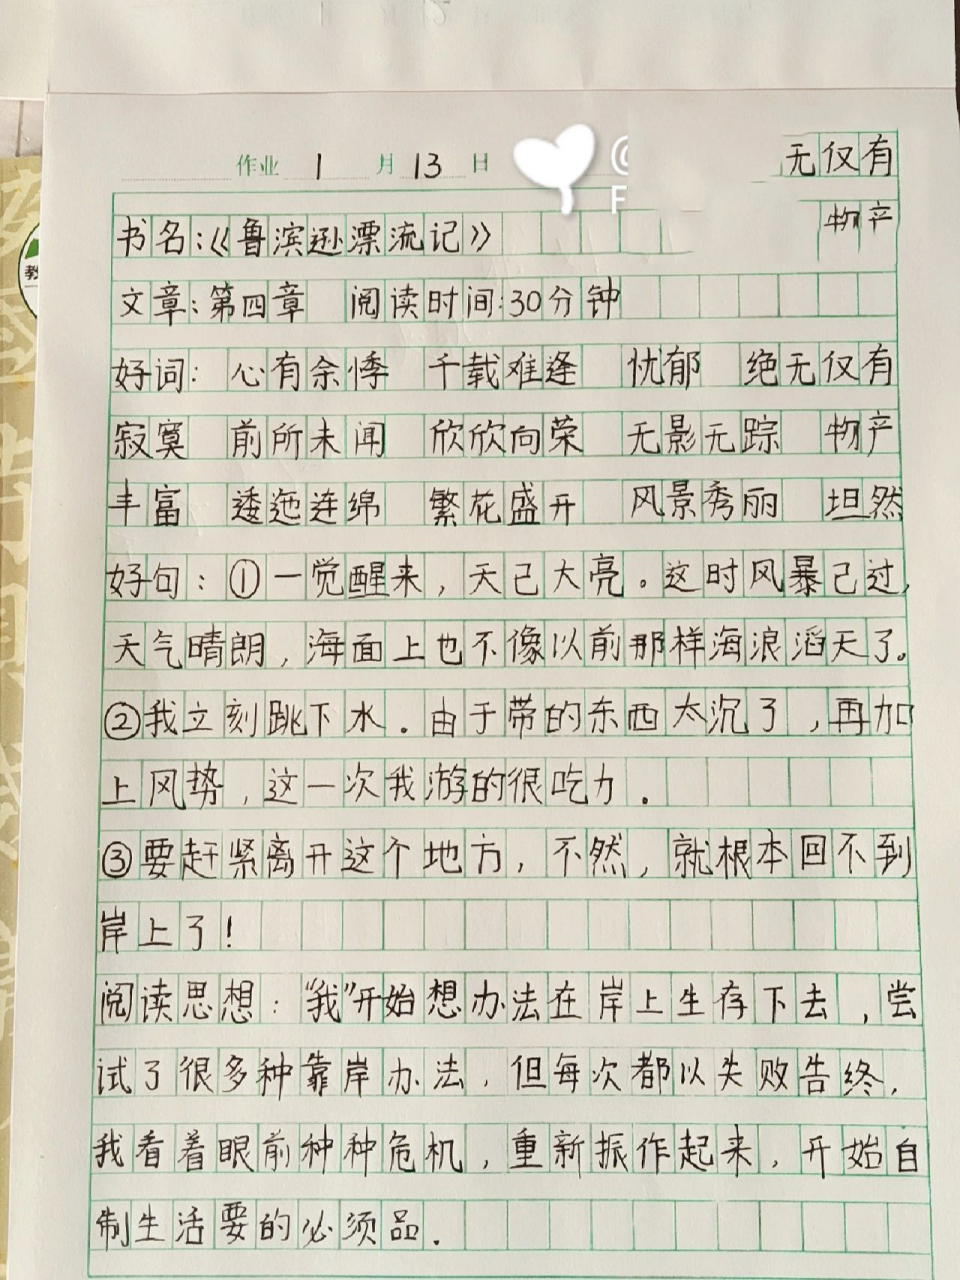 作业 1 月 13 日
无仅有
物产
书名:《鲁滨逊漂流记》
文章:第四章 阅读时间:30分钟
好词: 心有余悸 千载难逢 忧郁 绝无仅有
寂寞 前所未闻 欣欣向荣 无影无踪 物产
丰富 逶迤连绵 繁花盛开 风景秀丽 坦然
好句:①一觉醒来,天已大亮。这时风暴已过,
天气晴朗,海面上也不像以前那样海浪滔天了。
②我立刻跳下水.由于带的东西太沉了,再加
上风势,这一次我游的很吃力.
③要赶紧离开这个地方,不然,就根本回不到
岸上了!
阅读思想:"我"开始想办法在岸上生存下去,尝
试了很多种靠岸办法,但每次都以失败告终,
我看着眼前种种危机,重新振作起来,开始自
制生活要的必须品.